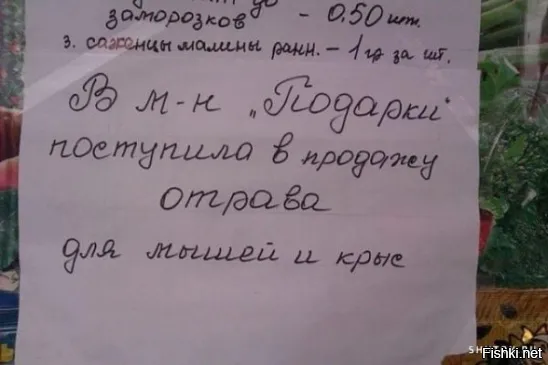 до
заморозков - 0.50 шт.
3. саженцы малины ранн. - 1 гр за шт.
В м-н „Подарки"
поступила в продажу
отрава
для мышей и крыс
Fishki.net